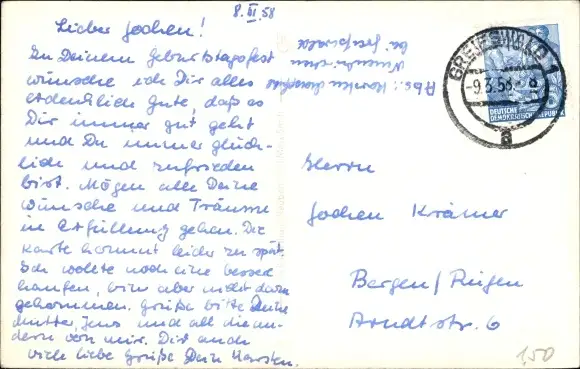 8. III. 58
Lieber Jochen!
Zu Deinem Geburtstagsfest
wünsche ich Dir alles
erdenklich Gute, daß es
Dir immer gut geht
und Du immer glück-
lich und zufrieden
bist. Mögen alle Deine
Wünsche und Träume
in Erfüllung gehen. Die
Karte kommt leider zu spät.
Ich wollte noch eine besser
kaufen, bin aber nicht dazu
gekommen. Grüße bitte Deine
Mutter, Jens und all die an-
dern von mir. Dir auch
viele liebe Grüße Dein Karsten.
Abs.: Karsten
bei Greifswald
GREIFSWALD 1
-9.3.58.
a
DEUTSCHE
DEMOKRATISCHE REPUBLIK
Herrn
Jochen Krämer
Bergen/Rügen
Arndtstr. 6
1,50